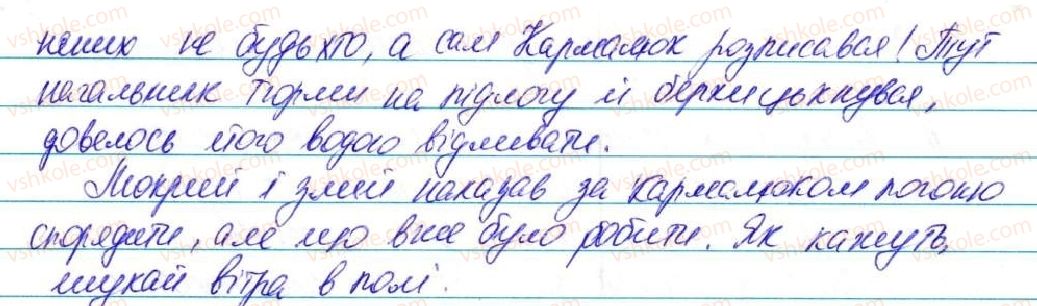 нешию не будь хто, а сам Кармалюк розписався! Тут
начальник тюрми на підлогу й беркицькнувся,
довелось його водою відливати.
Мокрий і злий наказав за Кармалюком погоню
спорядити, але що вже було робити. Як кажуть,
шукай вітра в полі.